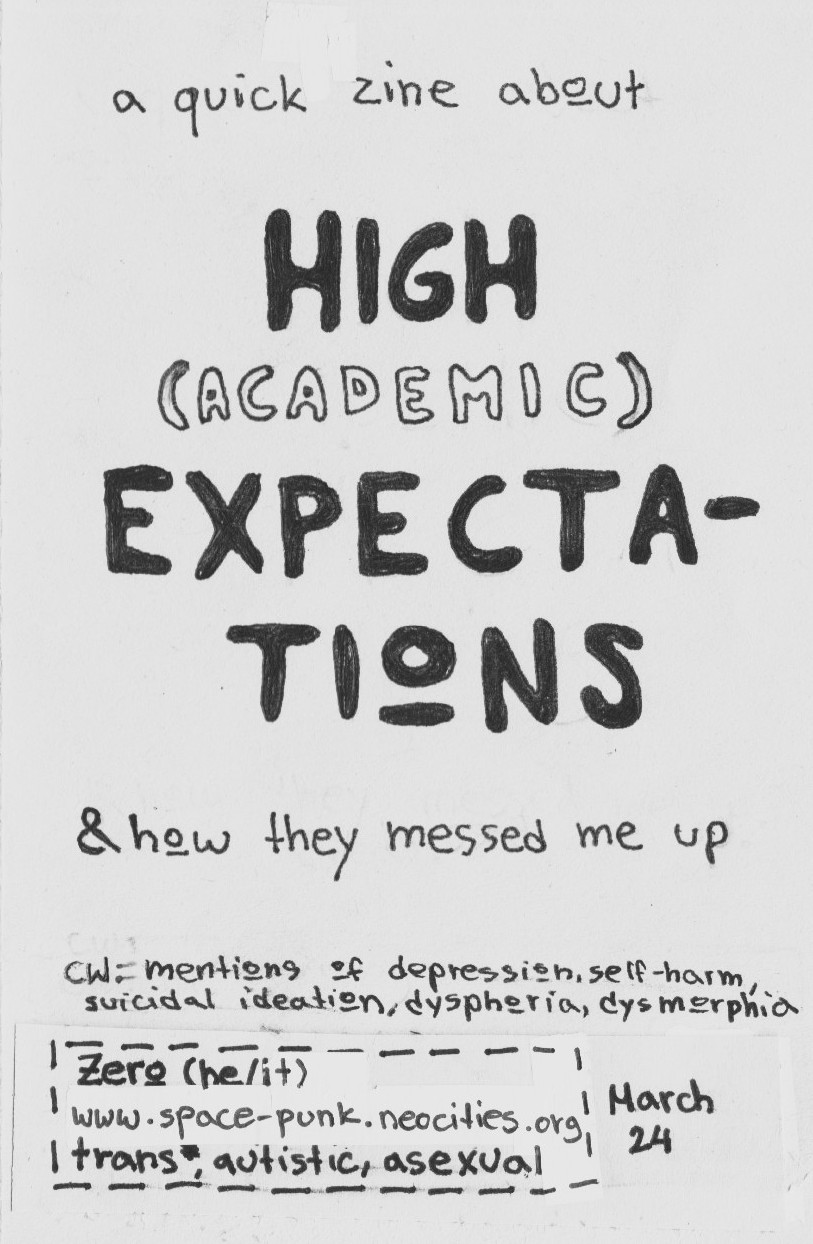 a quick zine about
HIGH
(ACADEMIC)
EXPECTA-
TIONS
& how they messed me up
CW: mentions of depression, self-harm,
suicidal ideation, dysphoria, dysmorphia
Zero (he/it)
www.space-punk.neocities.org
trans*, autistic, asexual
March
24